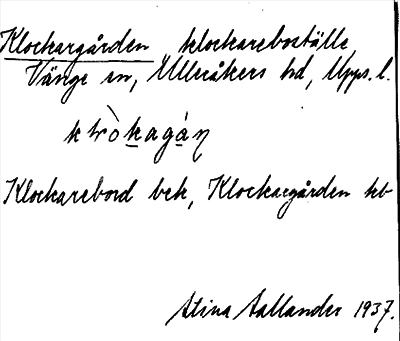 Klockargården klockareboställe
Vänge sn, Ulleråkers hd, Upps. l.
Klockarebord bek, Klockargården kb
Stina Sallander 1937.